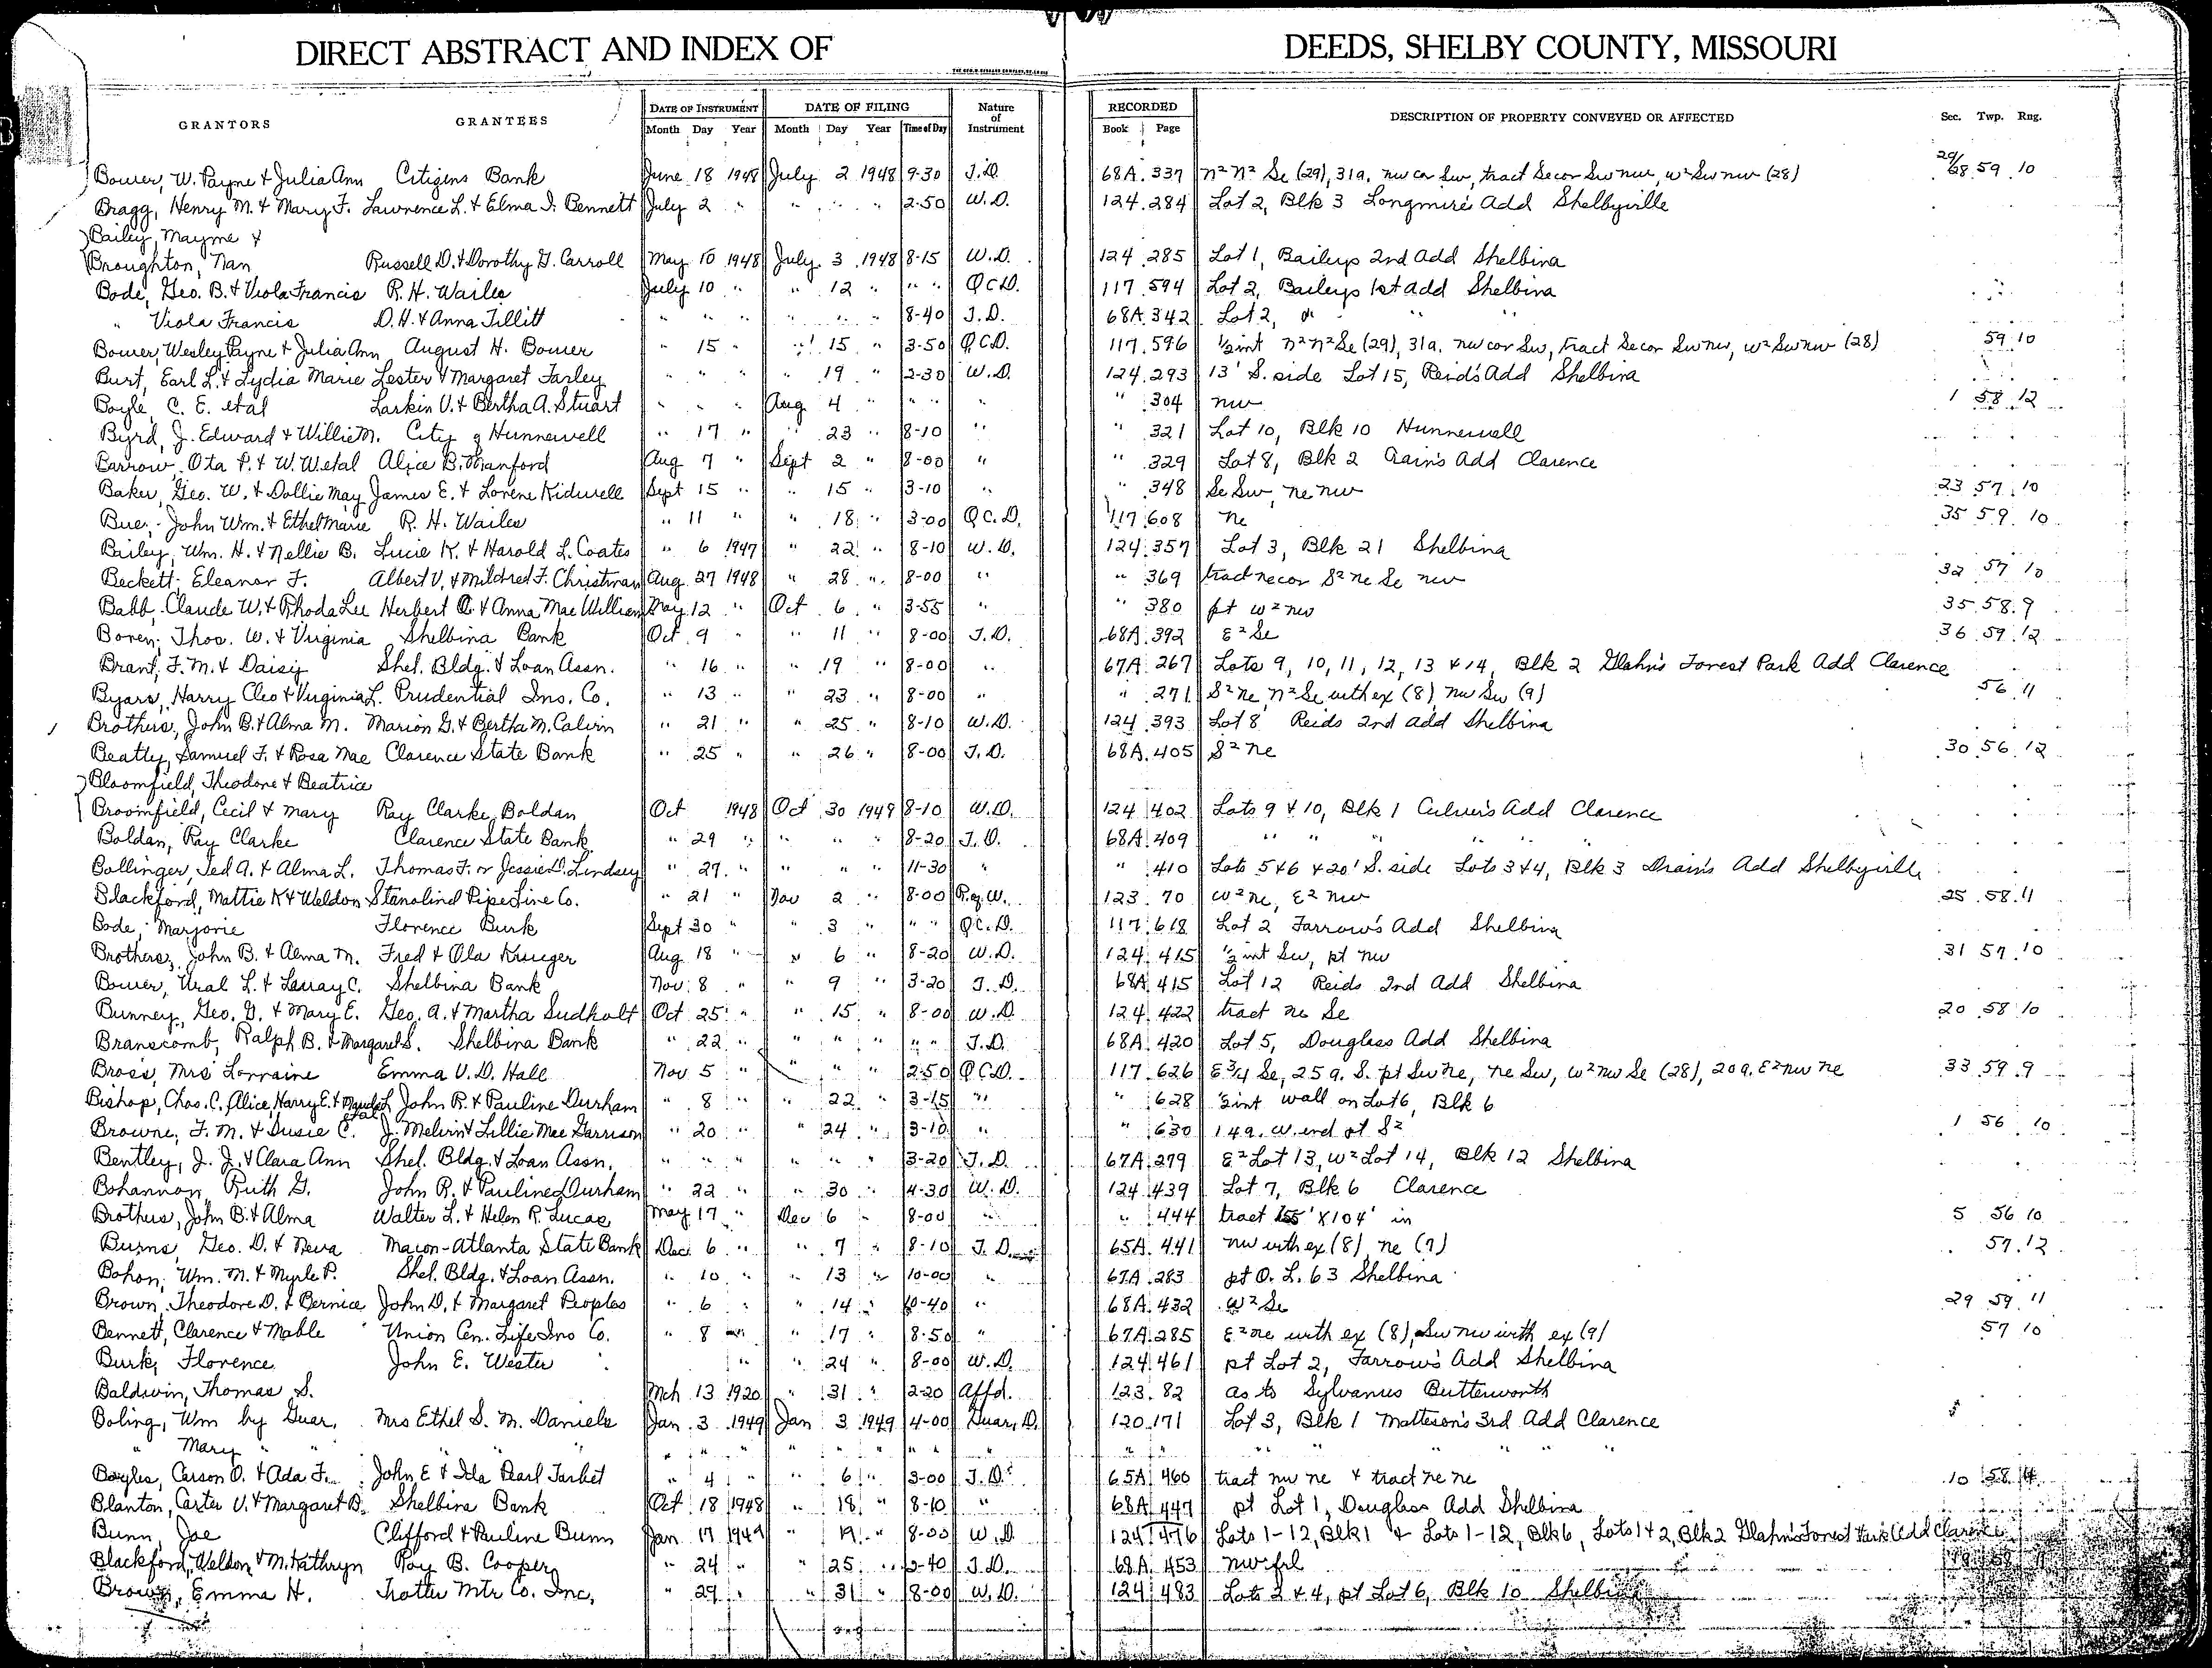 DIRECT ABSTRACT AND INDEX OF DEEDS, SHELBY COUNTY, MISSOURI
GRANTORS GRANTEES DATE OF INSTRUMENT DATE OF FILING Nature of Instrument RECORDED DESCRIPTION OF PROPERTY CONVEYED OR AFFECTED Sec. Twp. Rng.
Month Day Year Month Day Year Time of Day Book Page
Bower, W. Payne & Julia Ann Citizens Bank June 18 1948 July 2 1948 9-30 T.D. 68A 337 N² N² Se (29), 31a. nw cor Sw, tract Se cor Sw nw, w² Sw nw (28) 29/28 59 10
Bragg, Henry M. & Mary F. Lawrence L. & Elma I. Bennett July 2 " " " " 2-50 W.D. 124 284 Lot 2, Blk 3 Longmire's Add Shelbyville
Bailey, Mayme &
Broughton, Nan Russell D. & Dorothy G. Carroll May 10 1948 July 3 1948 8-15 W.D. 124 285 Lot 1, Baileys 2nd Add Shelbina
Bode, Geo. B. & Viola Francis R. H. Wailes July 10 " " 12 " " " QCD. 117 594 Lot 2, Baileys 1st Add Shelbina
" Viola Francis D. H. & Anna Tillitt " " " " " " 8-40 T.D. 68A 342 Lot 2, " "
Bower, Wesley Payne & Julia Ann August H. Bower " 15 " " 15 " 3-50 QCD. 117 596 ½ int n² n² Se (29), 31a. nw cor Sw, tract Se cor Sw nw, w² Sw nw (28) 59 10
Burt, Earl L. & Lydia Marie Lester & Margaret Farley " " " " 19 " 2-30 W.D. 124 293 13' S. side Lot 15, Reid's Add Shelbina
Boyle, C. E. etal Larkin V. & Bertha A. Stuart " " " Aug 4 " " " " " 304 nw 1 58 12
Byrd, J. Edward & Willie M. City of Hunnewell " 17 " " 23 " 8-10 " " 321 Lot 10, Blk 10 Hunnewell
Barrow, Ota P. & W. W. etal Alice B. Manford Aug 7 " Sept 2 " 8-00 " " 329 Lot 8, Blk 2 Crain's Add Clarence
Baker, Geo. W. & Dollie May James E. & Lorene Kidwell Sept 15 " " 15 " 3-10 " " 348 Se Sw, ne nw 23 57 10
Bue, John Wm. & Ethel Marie R. H. Wailes " 11 " " 18 " 3-00 Q.C.D. 117 608 ne 35 59 10
Bailey, Wm. H. & Nellie B. Lucie K. & Harold L. Coates " 6 1947 " 22 " 8-10 W.D. 124 357 Lot 3, Blk 21 Shelbina
Beckett, Eleanor F. Albert V. & Mildred F. Christman Aug 27 1948 " 28 " 8-00 " " 369 tract ne cor S² ne Se nw 32 57 10
Babb, Claude W. & Rhoda Lee Herbert & Anna Mae William May 12 " Oct 6 " 3-55 " " 380 pt w² nw 35 58 9
Boren, Thos. W. & Virginia Shelbina Bank Oct 9 " " 11 " 8-00 T.D. 68A 392 E² Se 36 59 12
Brant, F. M. & Daisy Shel. Bldg. & Loan Assn. " 16 " " 19 " 8-00 " 67A 267 Lots 9, 10, 11, 12, 13 & 14, Blk 2 Glahn's Forest Park Add Clarence
Byars, Harry Cleo & Virginia L. Prudential Ins. Co. " 13 " " 23 " 8-00 " " 271 S² ne, n² Se with ex (8), nw Sw (9) 56 11
Brothers, John B. & Alma M. Marion G. & Bertha M. Calvin " 21 " " 25 " 8-10 W.D. 124 393 Lot 8 Reids 2nd Add Shelbina
Beatty, Samuel F. & Rosa Mae Clarence State Bank " 25 " " 26 " 8-00 T.D. 68A 405 S² ne 30 56 12
Bloomfield, Theodore & Beatrice
Broomfield, Cecil & Mary Ray Clarke Boldan Oct 1948 Oct 30 1948 8-10 W.D. 124 402 Lots 9 & 10, Blk 1 Culver's Add Clarence
Boldan, Ray Clarke Clarence State Bank " 29 " " " " 8-20 T.D. 68A 409 " " " " "
Bollinger, Ted A. & Alma L. Thomas F. or Jessie D. Lindsey " 27 " " " " 11-30 " " 410 Lots 5 & 6 & 20' S. side Lots 3 & 4, Blk 3 Drain's Add Shelbyville
Blackford, Mattie K & Weldon Stanolind Pipe Line Co. " 21 " Nov 2 " 8-00 R. of W. 123 70 w² ne, E² nw 25 58 11
Bode, Marjorie Florence Burk Sept 30 " " 3 " " " Q.C.D. 117 618 Lot 2 Farrow's Add Shelbina
Brothers, John B. & Alma M. Fred & Ola Krueger Aug 18 " " 6 " 8-20 W.D. 124 415 ½ int Sw, pt nw 31 57 10
Bower, Ural L. & Lauray C. Shelbina Bank Nov 8 " " 9 " 3-20 T.D. 68A 415 Lot 12 Reids 2nd Add Shelbina
Bunney, Geo. G. & Mary E. Geo. A. & Martha Sudholt Oct 25 " " 15 " 8-00 W.D. 124 422 tract ne Se 20 58 10
Branscomb, Ralph B. & Margaret S. Shelbina Bank " 22 " " " " " " T.D. 68A 420 Lot 5, Douglass Add Shelbina
Bross, Mrs Lorraine Emma V. D. Hall Nov 5 " " " 2-50 Q.C.D. 117 626 E¾ Se, 25a. S. pt Sw ne, ne Sw, w² nw Se (28), 20a. E² nw ne 33 59 9
Bishop, Chas. C., Alice, Harry E. & Maude L etal John R. & Pauline Durham " 8 " " 22 " 3-15 " " 628 ½ int wall on Lot 6, Blk 6
Browne, F. M. & Susie C. J. Melvin & Lillie Mae Garrison " 20 " " 24 " 3-10 " " 630 14a. W. end pt S² 1 56 10
Bentley, J. J. & Clara Ann Shel. Bldg. & Loan Assn. " " " " " " 3-20 T.D. 67A 279 E² Lot 13, w² Lot 14, Blk 12 Shelbina
Bohannon, Ruth G. John R. & Pauline Durham " 22 " " 30 " 4-30 W.D. 124 439 Lot 7, Blk 6 Clarence
Brothers, John B. & Alma Walter L. & Helen R. Lucas May 17 " Dec 6 " 8-00 " " 444 tract 155' X 104' in 5 56 10
Burns, Geo. D. & Neva Macon-Atlanta State Bank Dec 6 " " 7 " 8-10 T.D. 65A 441 nw with ex (8), ne (7) 57 12
Bohon, Wm. M. & Myrle P. Shel. Bldg. & Loan Assn. " 10 " " 13 " 10-00 " 67A 283 pt O. L. 63 Shelbina
Brown, Theodore D. & Bernice John D. & Margaret Peoples " 6 " " 14 " 10-40 " 68A 432 w² Se 29 59 11
Bennett, Clarence & Mable Union Cen. Life Ins Co. " 8 " " 17 " 8-50 " 67A 285 E² ne with ex (8), Sw nw with ex (9) 57 10
Burk, Florence John E. Wester " " 24 " 8-00 W.D. 124 461 pt Lot 2, Farrow's Add Shelbina
Baldwin, Thomas S. Mch 13 1920 " 31 " 2-20 Affd. 123 82 as to Sylvanus Butterworth
Boling, Wm by Guar. Mrs Ethel S. M. Daniels Jan 3 1949 Jan 3 1949 4-00 Guar. D. 120 171 Lot 3, Blk 1 Matteson's 3rd Add Clarence
" Mary " " " " " " " " " " " " " " " " " "
Bayles, Carson O. & Ada F. John E & Ida Pearl Tarbet " 4 " " 6 " 3-00 T.D. 65A 460 tract nw ne & tract ne ne 10 58
Blanton, Carter V. & Margaret B. Shelbina Bank Oct 18 1948 " 18 " 8-10 " 68A 447 pt Lot 1, Douglass Add Shelbina
Bunn, Joe Clifford & Pauline Bunn Jan 17 1949 " 19 " 8-00 W.D. 124 476 Lots 1-12, Blk 1 & Lots 1-12, Blk 6, Lots 1 & 2, Blk 2 Glahn's Forest Park Add Clarence
Blackford, Weldon & M. Kathryn Roy B. Cooper " 24 " " 25 " 2-40 T.D. 68A 453 nw frl
Brown, Emma H. Trotter Mtr Co. Inc. " 29 " " 31 " 8-00 W.D. 124 483 Lots 2 & 4, pt Lot 6, Blk 10 Shelbina